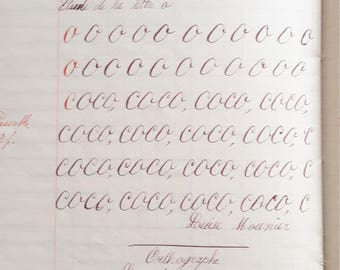 Etude de la lettre o
o o o o o o o o o o o
o o o o o o o o o o o
coco, coco, coco, coco,
coco, coco, coco, coco, c
coco, coco, coco, coco, c
coco, coco, coco, coco, c
Louise Mounier
Orthographe